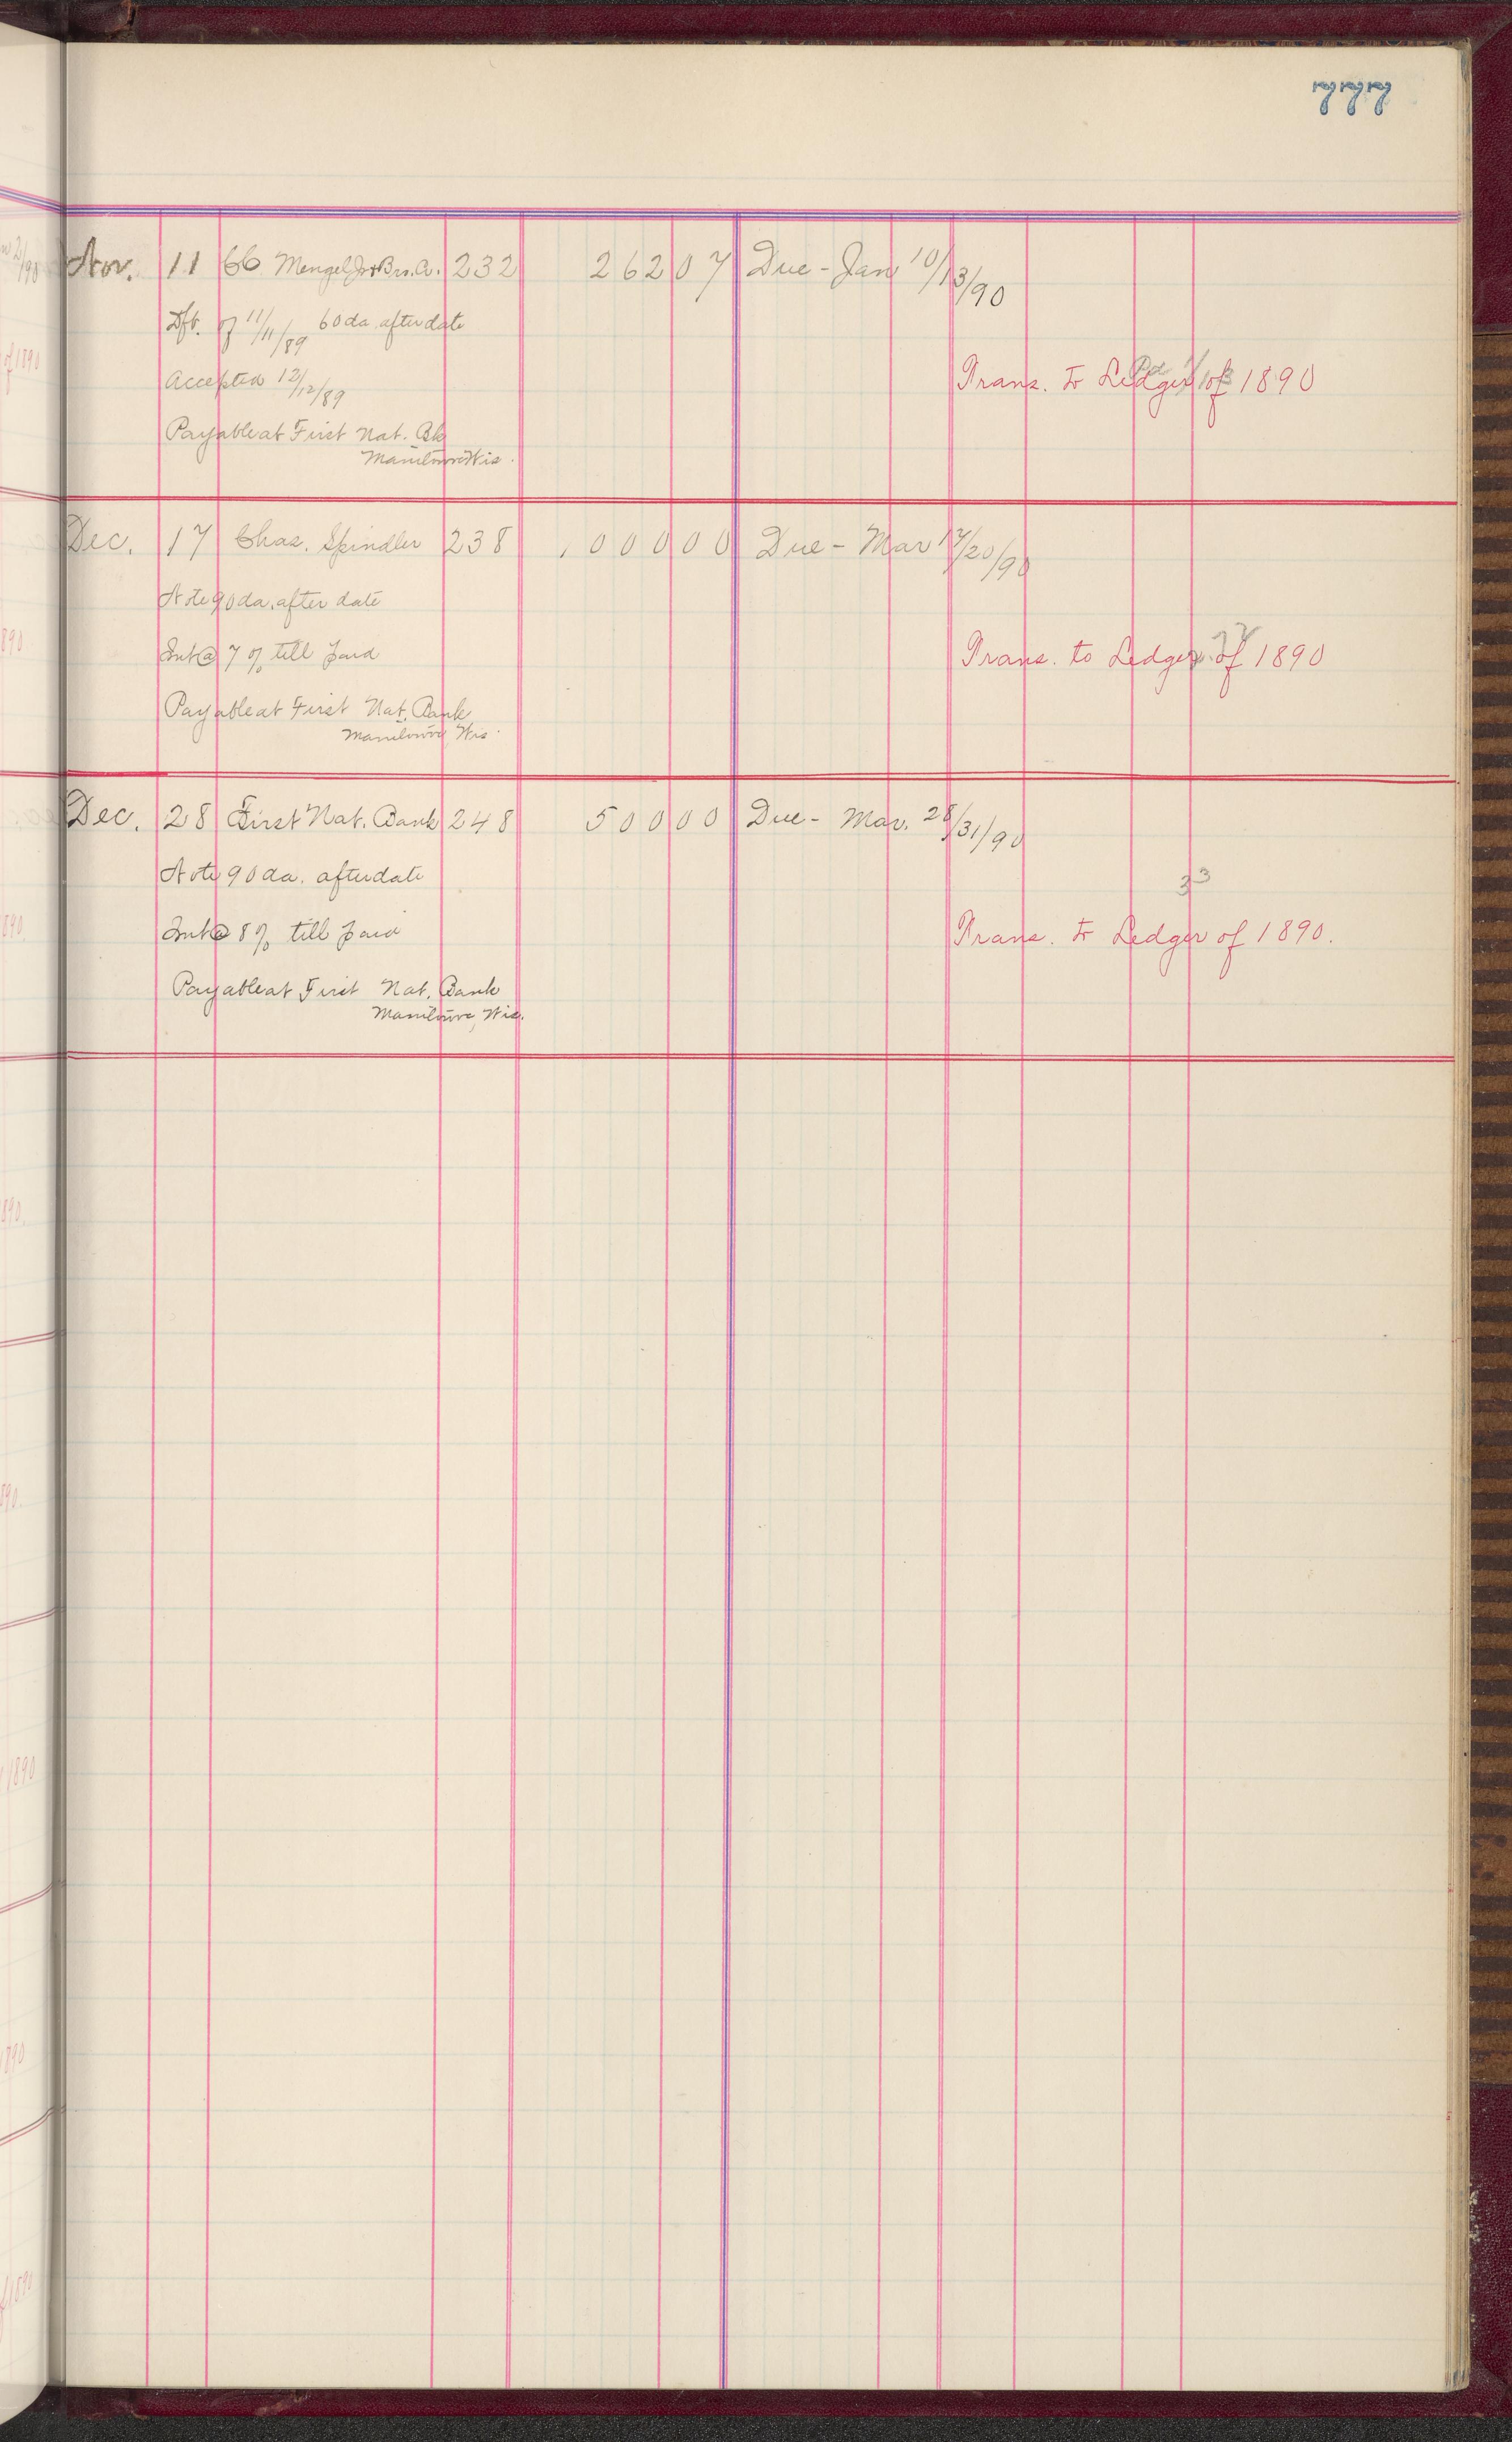 777
Nov. 11 C.C. Mengel Jr & Bro. Co. 232 262 07 Due - Jan 10/13/90
Dft. of 11/11/89 60 da after date
Accepted 12/12/89
Trans. to Ledger of 1890
Payable at First Nat. Bk
Manitowoc Wis.
Dec. 17 Chas. Spindler 238 1000 00 Due - Mar 17/20/90
Note 90 da. after date
Int @ 7 % till paid
Trans. to Ledger of 1890
Payable at First Nat. Bank
Manitowoc, Wis.
Dec. 28 First Nat. Bank 248 500 00 Due - Mar. 28/31/90
Note 90 da. after date
33
Int @ 8 % till paid
Trans. to Ledger of 1890.
Payable at First Nat. Bank
Manitowoc, Wis.